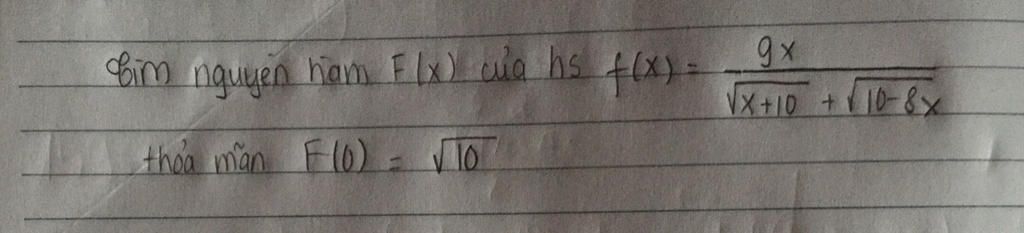 Tìm nguyên hàm F(x) của hs f(x) = 9x / (√(x+10) + √(10-8x))
thỏa mãn F(0) = √10